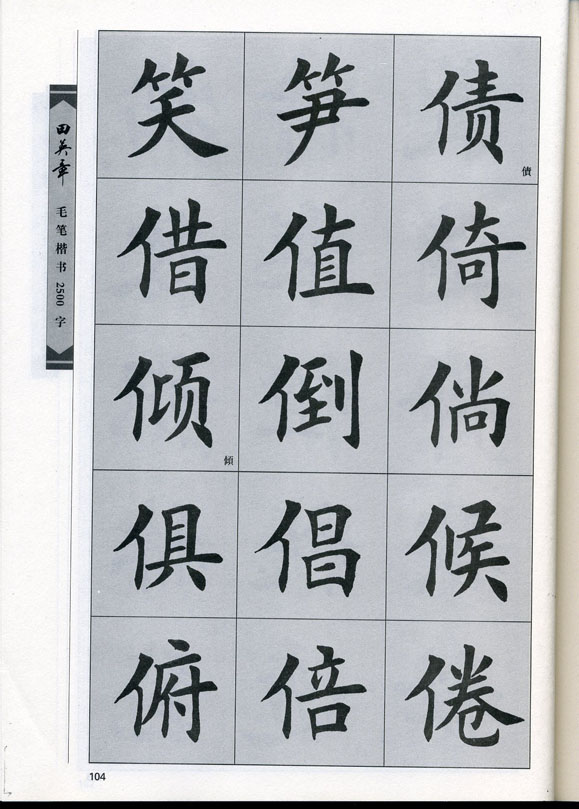 笑 笋 债
債
借 值 倚
倾 倒 倘
傾
俱 倡 候
俯 倍 倦
田英章
毛笔楷书2500字
104